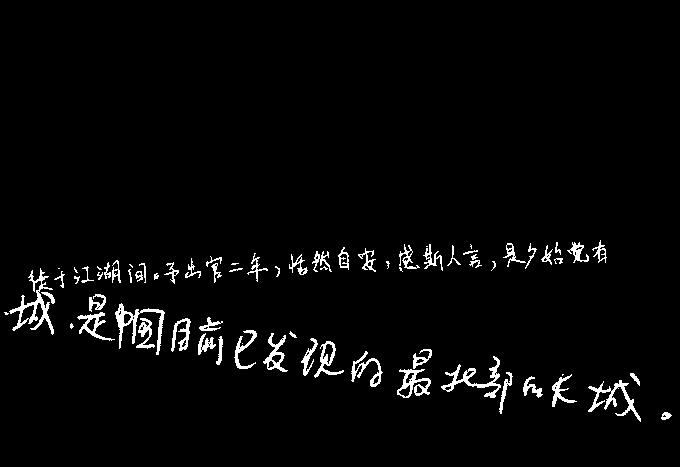 徙于江湖间。予出官二年，恬然自安，感斯人言，是夕始觉有
城，是中国目前已发现的最北部的长城。